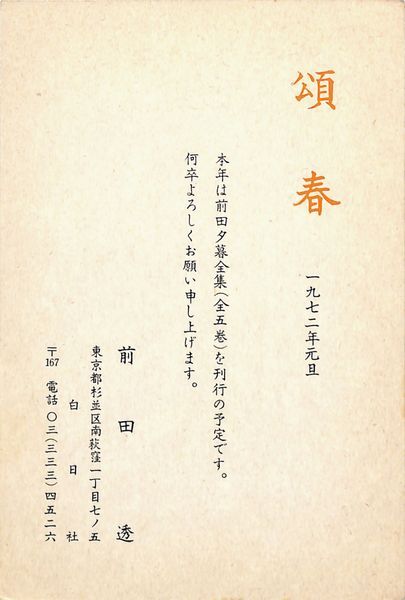 頌春
一九七二年元旦
本年は前田夕暮全集(全五巻)を刊行の予定です。
何卒よろしくお願い申し上げます。
前田透
東京都杉並区南荻窪一丁目七ノ五
白日社
〒167 電話〇三(三三三)四五二六